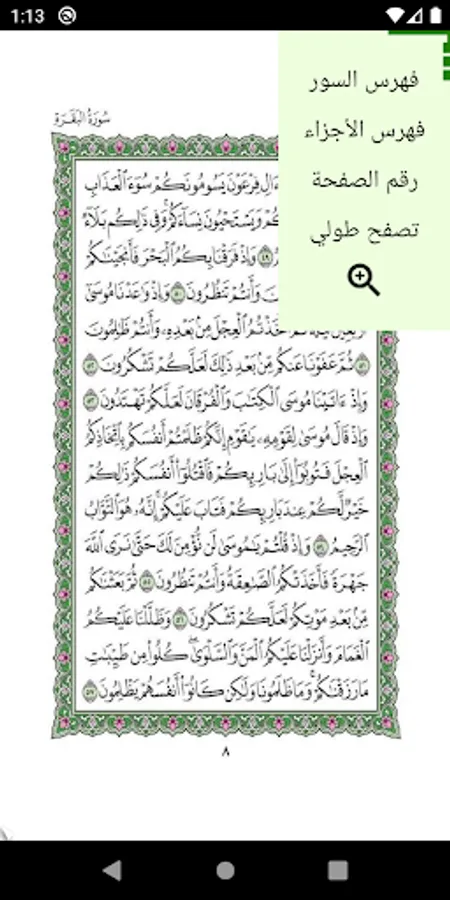 1:13
فهرس السور
فهرس الأجزاء
رقم الصفحة
تصفح طولي
سُورَةُ البَقَرَةِ
ءَالِ فِرْعَوْنَ يَسُومُونَكُمْ سُوٓءَ ٱلْعَذَابِ
وَيَسْتَحْيُونَ نِسَآءَكُمْ وَفِى ذَٰلِكُم بَلَآءٌ
٤٩ وَإِذْ فَرَقْنَا بِكُمُ ٱلْبَحْرَ فَأَنجَيْنَٰكُمْ
وَأَنتُمْ تَنظُرُونَ ٥٠ وَإِذْ وَٰعَدْنَا مُوسَىٰٓ
ٱتَّخَذْتُمُ ٱلْعِجْلَ مِنۢ بَعْدِهِۦ وَأَنتُمْ ظَٰلِمُونَ
٥١ ثُمَّ عَفَوْنَا عَنكُم مِّنۢ بَعْدِ ذَٰلِكَ لَعَلَّكُمْ تَشْكُرُونَ ٥٢
وَإِذْ ءَاتَيْنَا مُوسَى ٱلْكِتَٰبَ وَٱلْفُرْقَانَ لَعَلَّكُمْ تَهْتَدُونَ ٥٣
وَإِذْ قَالَ مُوسَىٰ لِقَوْمِهِۦ يَٰقَوْمِ إِنَّكُمْ ظَلَمْتُمْ أَنفُسَكُم بِٱتِّخَاذِكُمُ
ٱلْعِجْلَ فَتُوبُوٓا۟ إِلَىٰ بَارِئِكُمْ فَٱقْتُلُوٓا۟ أَنفُسَكُمْ ذَٰلِكُمْ
خَيْرٌ لَّكُمْ عِندَ بَارِئِكُمْ فَتَابَ عَلَيْكُمْ إِنَّهُۥ هُوَ ٱلتَّوَّابُ
ٱلرَّحِيمُ ٥٤ وَإِذْ قُلْتُمْ يَٰمُوسَىٰ لَن نُّؤْمِنَ لَكَ حَتَّىٰ نَرَى ٱللَّهَ
جَهْرَةً فَأَخَذَتْكُمُ ٱلصَّٰعِقَةُ وَأَنتُمْ تَنظُرُونَ ٥٥ ثُمَّ بَعَثْنَٰكُم
مِّنۢ بَعْدِ مَوْتِكُمْ لَعَلَّكُمْ تَشْكُرُونَ ٥٦ وَظَلَّلْنَا عَلَيْكُمُ
ٱلْغَمَامَ وَأَنزَلْنَا عَلَيْكُمُ ٱلْمَنَّ وَٱلسَّلْوَىٰ كُلُوا۟ مِن طَيِّبَٰتِ
مَا رَزَقْنَٰكُمْ وَمَا ظَلَمُونَا وَلَٰكِن كَانُوٓا۟ أَنفُسَهُمْ يَظْلِمُونَ ٥٧
٨